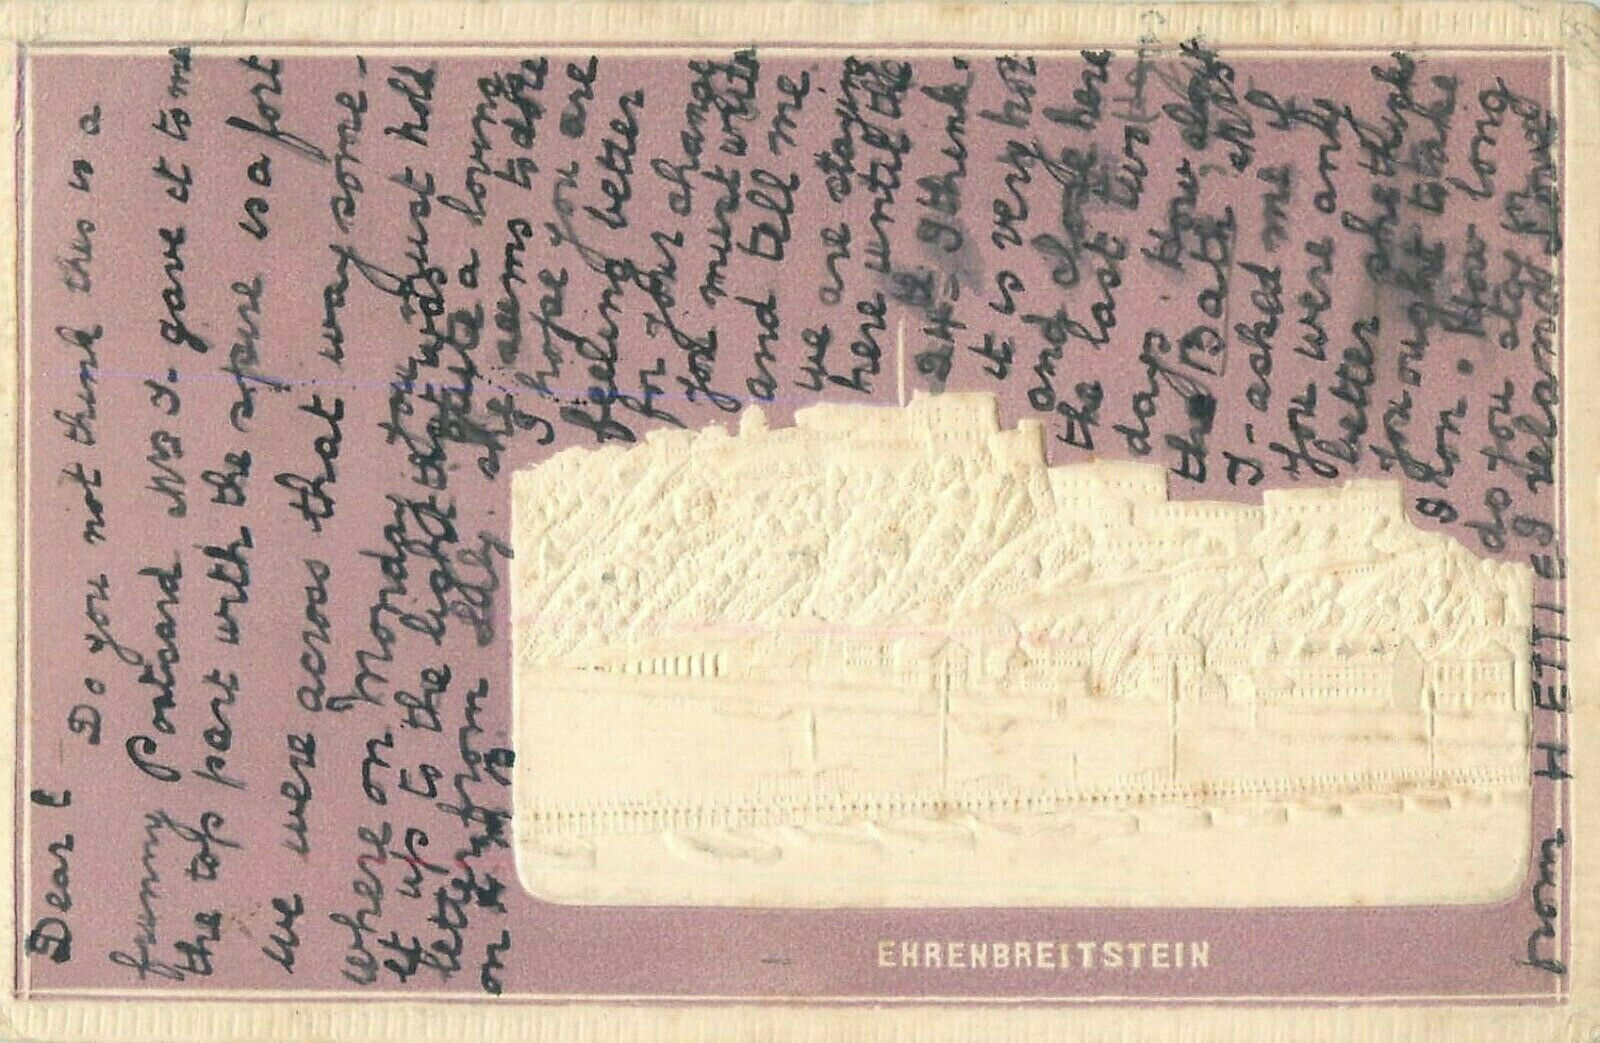 Dear E
Do you not think this is a
funny Postcard Mrs J. gave it to me
the top part with the spire is a fort
we were across that way some-
where on Monday if you just hold
it up to the light that was
letter from Lily. she seems to dote
on
I hope you are
feeling better
for your change
you must write
and tell me.
we are staying
here until the
24th I think.
it is very hot
and close here
the last two
days. How does
the Bath
I- asked me if
You were any
better she thinks
You ought to take
Iron. How long
do you stay in
Ireland
from HETTIE
EHRENBREITSTEIN